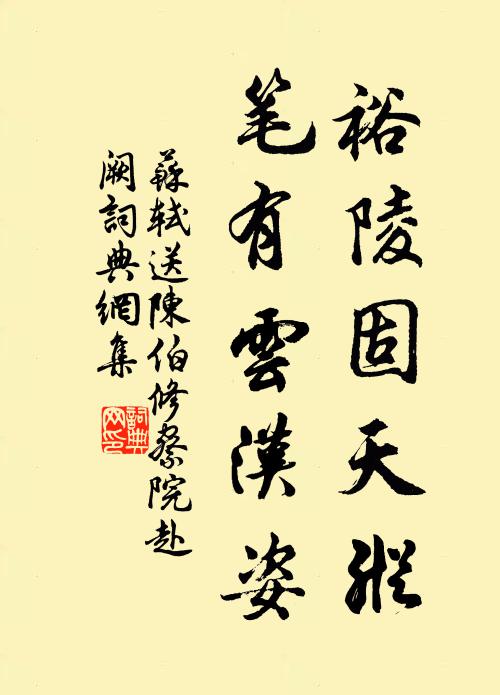 裕陵固天縱
笔有雲漢姿
蘇軾送陳伯修察院赴
闕詞典網集
詞典
网印